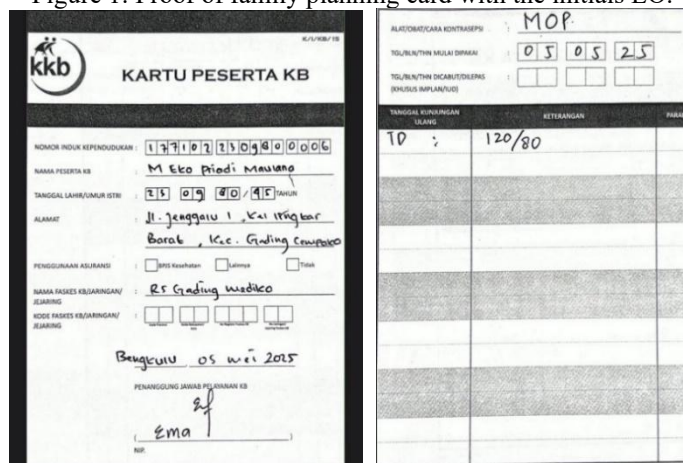 Figure 1. Proof of family planning card with the initials EO.
K/I/KB/15
kkb
KARTU PESERTA KB
NOMOR INDUK KEPENDUDUKAN : 1771022309800006
NAMA PESERTA KB : M Eko Priodi Maulana
TANGGAL LAHIR/UMUR ISTRI : 23 09 80 / 45 TAHUN
ALAMAT : Jl. Jenggalu 1, Kel
Barat, Kec. Gading Cempaka
PENGGUNAAN ASURANSI : BPJS Kesehatan Lainnya Tidak
NAMA FASKES KB/JARINGAN/ : RS Gading Mediko
JEJARING
KODE FASKES KB/JARINGAN/ :
JEJARING
Bengkulu 05 mei 2025
PENANGGUNG JAWAB PELAYANAN KB
( Ema )
NIP.
ALAT/OBAT/CARA KONTRASEPSI : MOP
TGL/BLN/THN MULAI DIPAKAI : 05 05 25
TGL/BLN/THN DICABUT/DILEPAS :
(KHUSUS IMPLAN/IUD)
TANGGAL KUNJUNGAN ULANG KETERANGAN
TD : 120/80